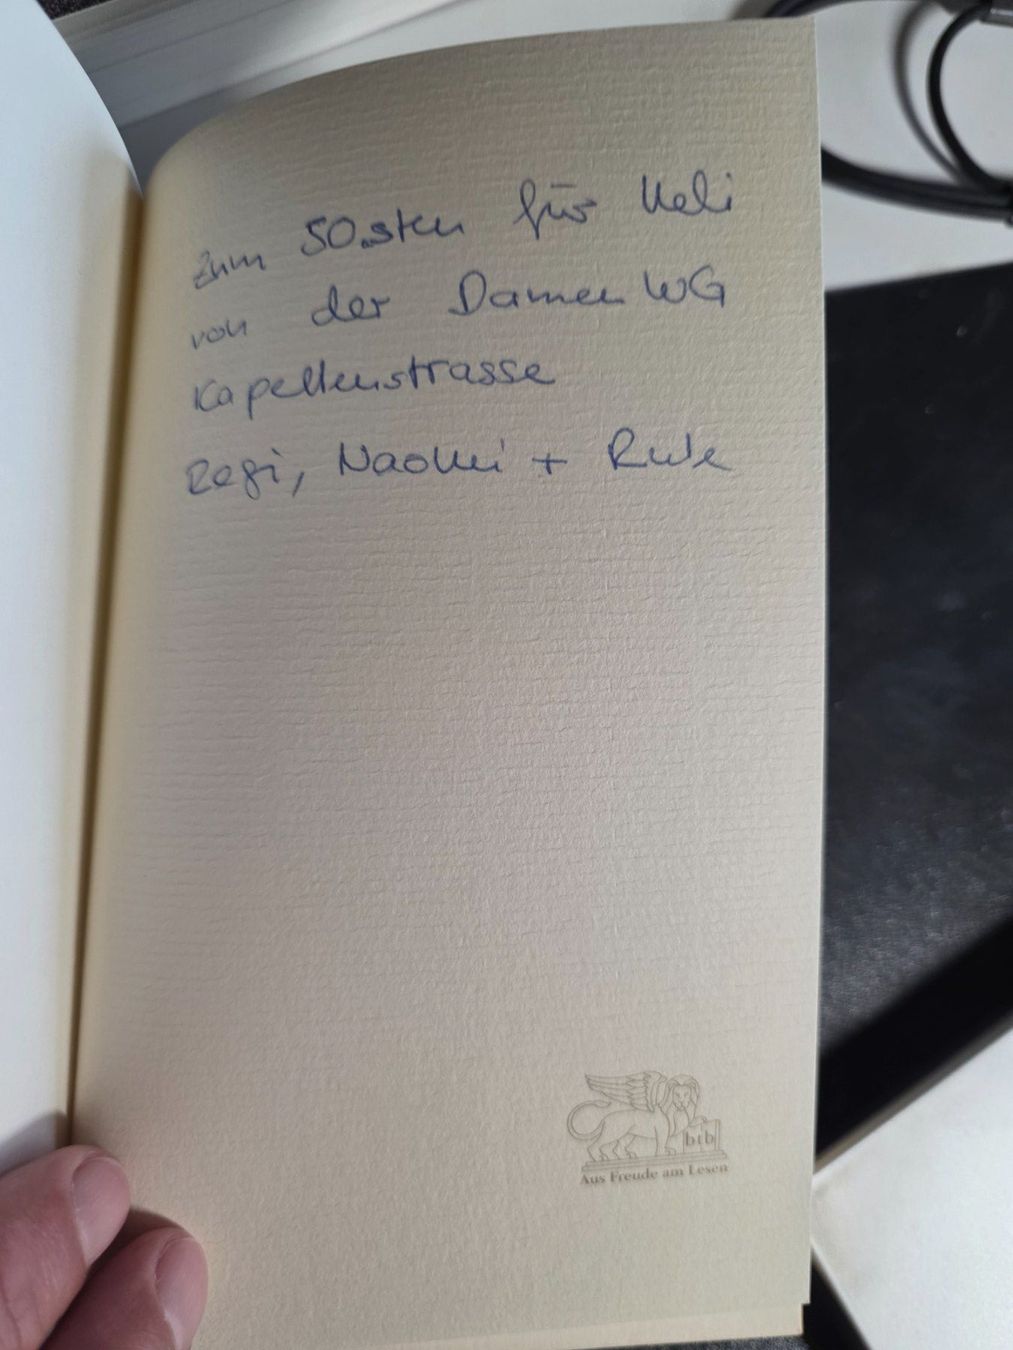 zum 50.sten für Ueli
von der Damen WG
Kapellenstrasse
Regi, Naomi +
btb
Aus Freude am Lesen